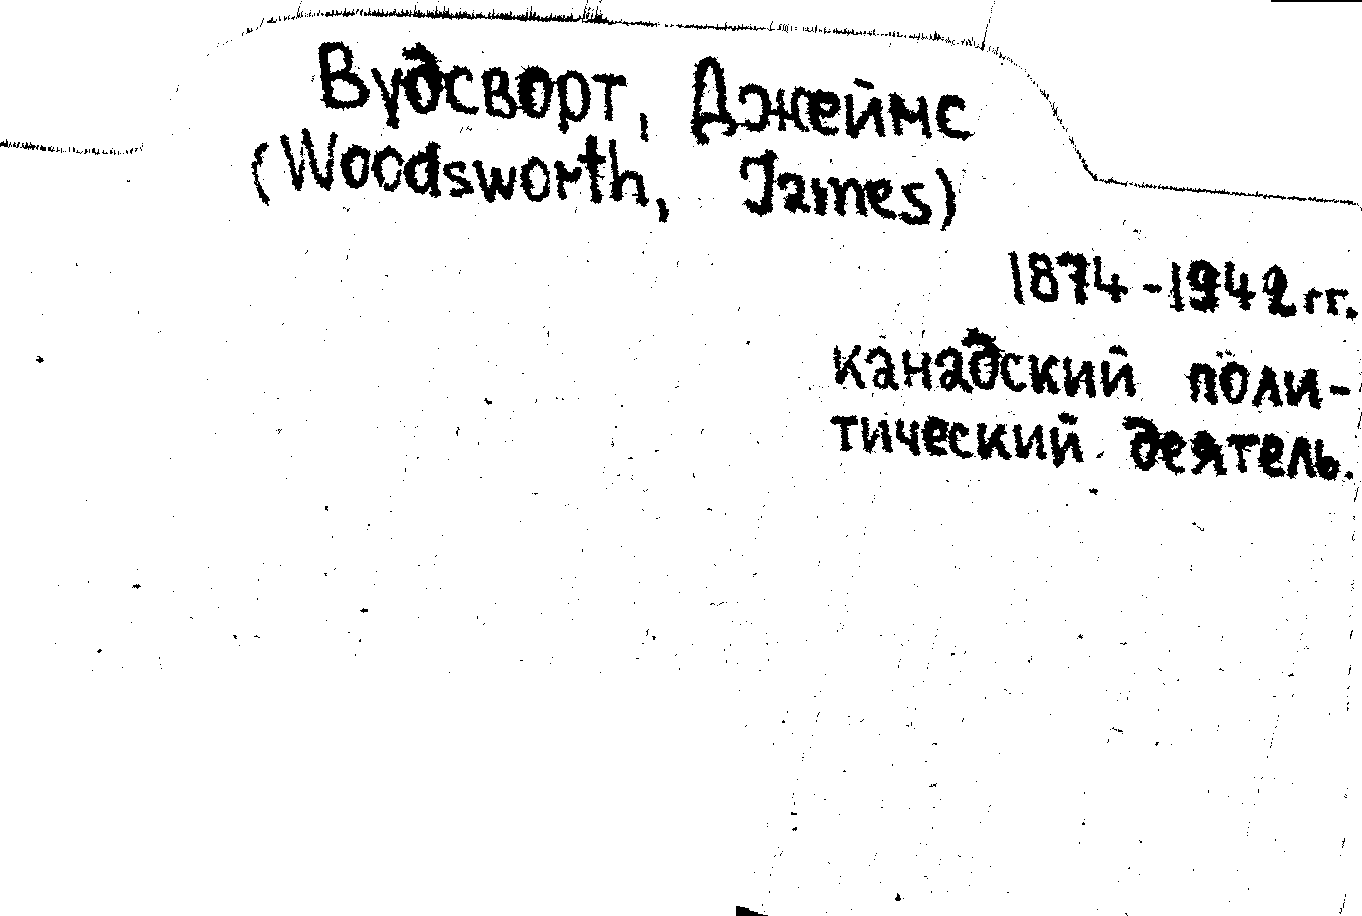 Вудсворт, Джеймс
(Woodsworth, James)
1874-1942 гг.
канадский поли-
тический деятель.